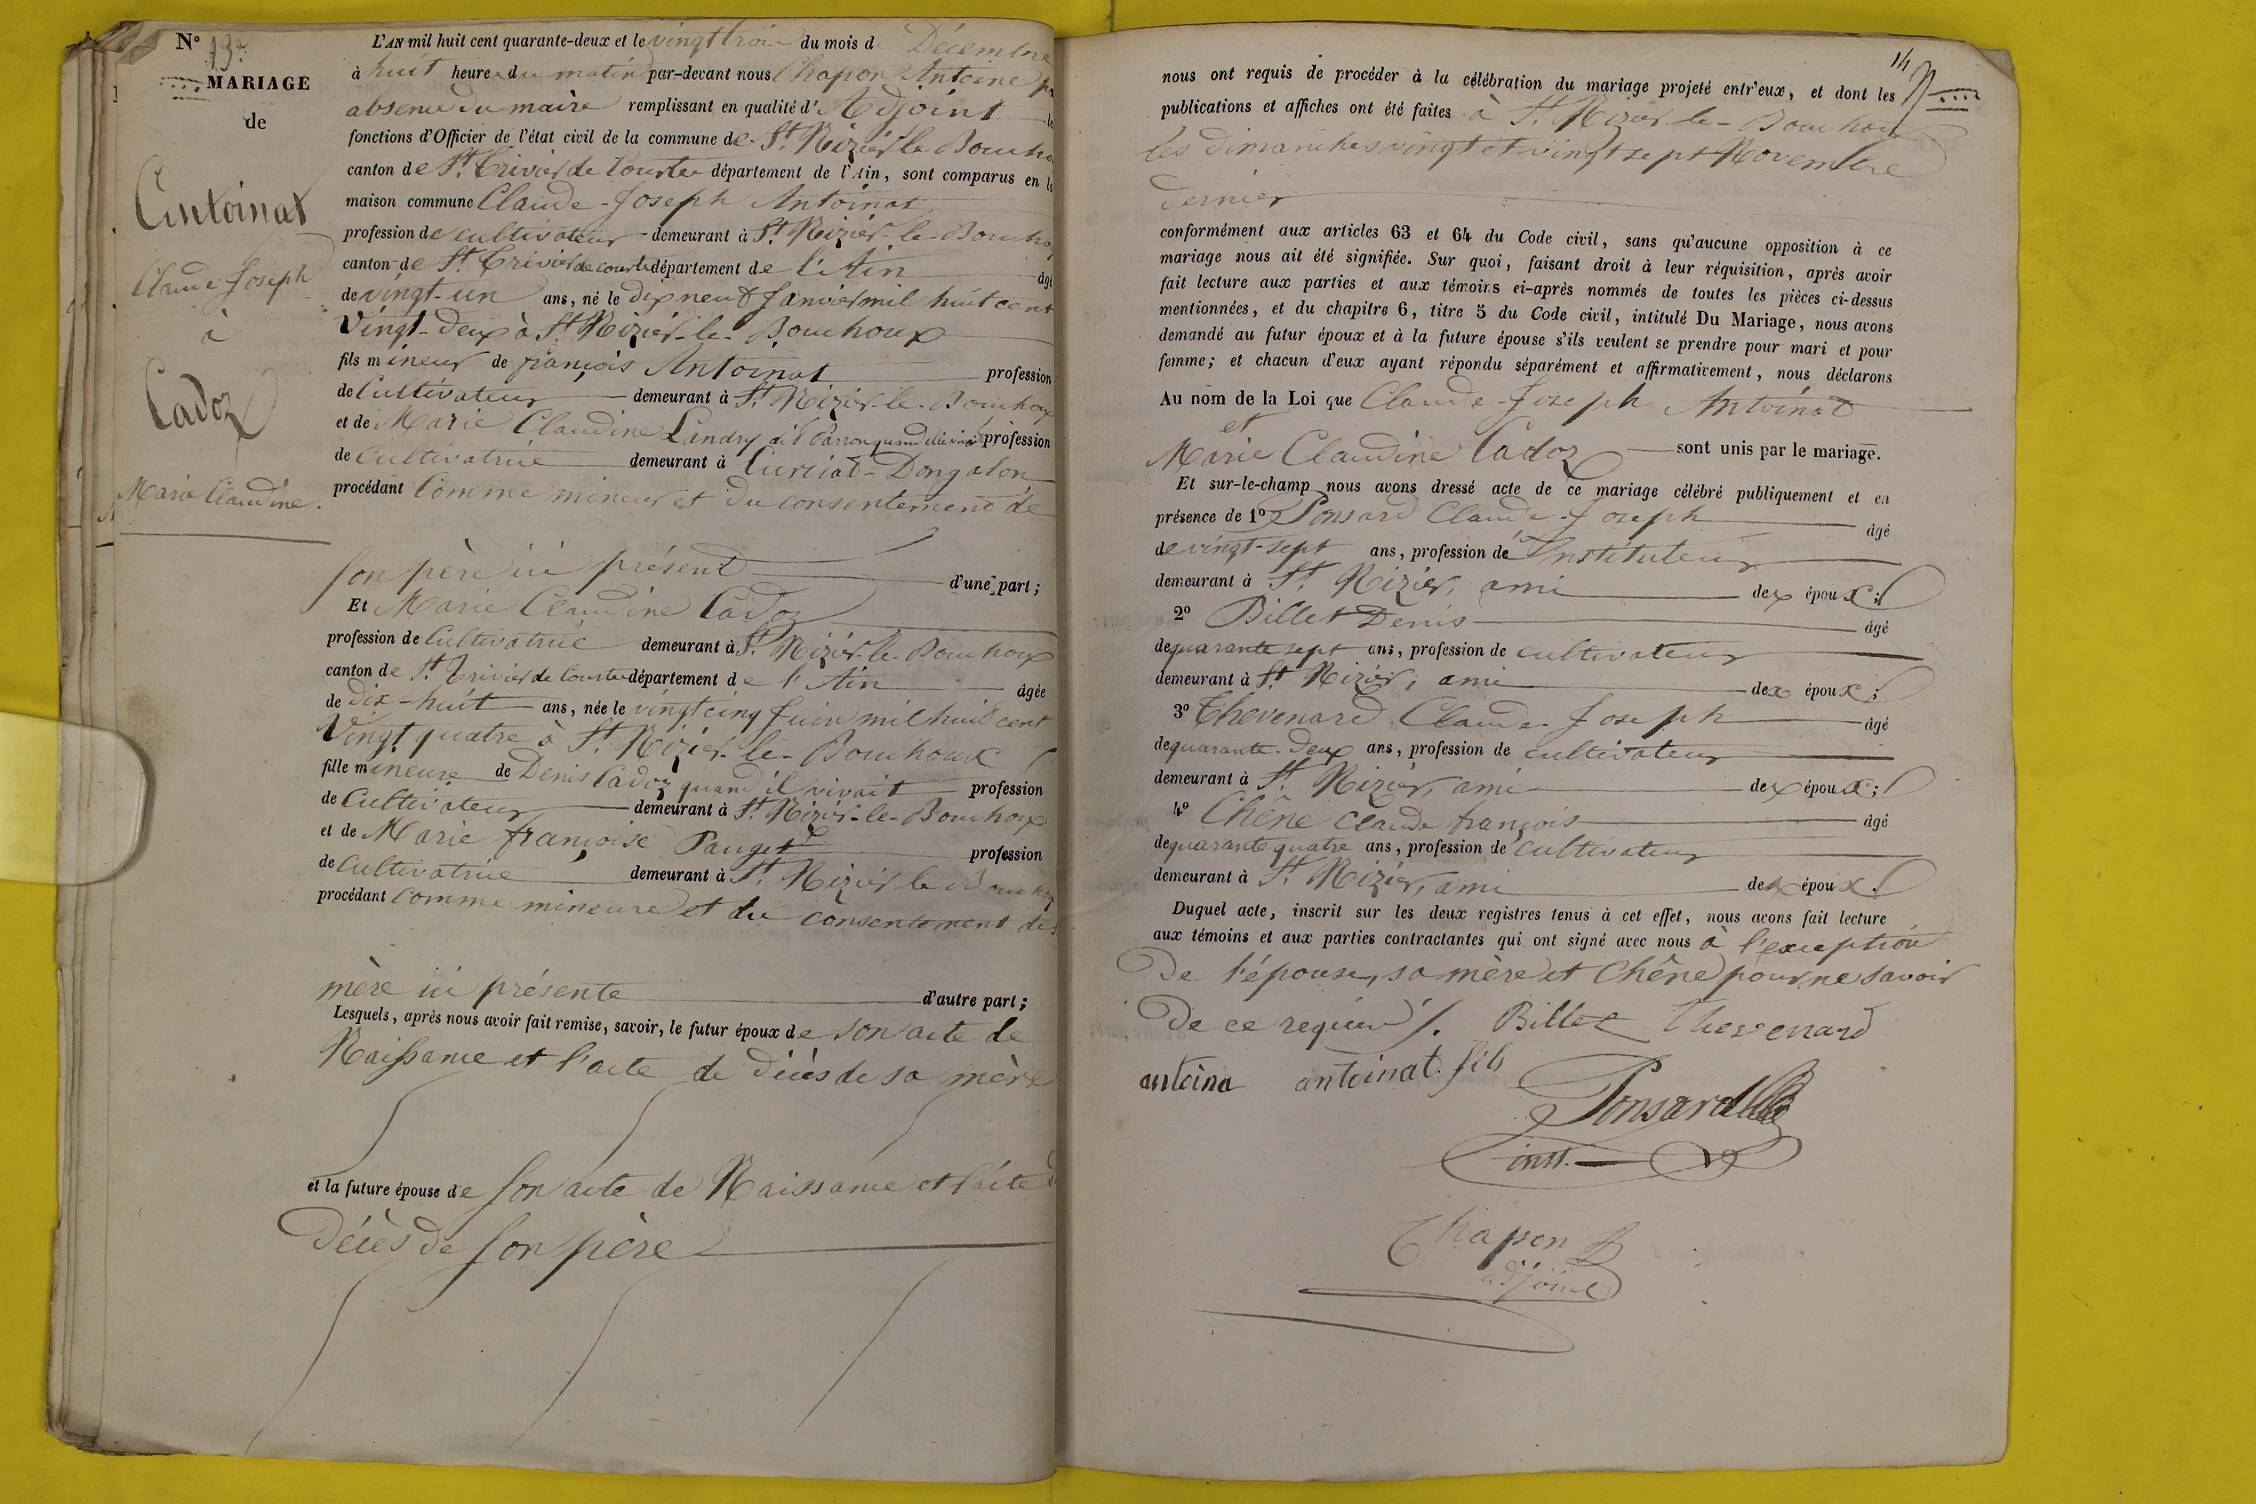 N° 13e
MARIAGE
de
Antoinat
Claude Joseph
à
Cadoz
Marie Claudine.
L'AN mil huit cent quarante-deux et le vingt trois du mois d Décembre
à huit heures du matin par-devant nous Chapon Antoine p
absence du maire remplissant en qualité d' Adjoint le
fonctions d'Officier de l'état civil de la commune de St Nizier le Bouho
canton de St. Trivier de Courtes département de l'Ain, sont comparus en l
maison commune Claude-Joseph Antoinat
profession de cultivateur demeurant à St. Nizier-le-Bouho
canton de St. Trivier de courtes département de l'Ain âgé
de vingt-un ans, né le dix neuf Janvier mil huit cent
Vingt-deux à St Nizier-le-Bouhoux
fils mineur de françois Antoinat profession
de Cultivateur demeurant à St. Nizier-le-Bouhoux
et de Marie Claudine Landry dit Parron quand elle vivait profession
de Cultivatrice demeurant à Curciat-Dongalon
procédant Comme mineur et du consentement de
son père ici présent d'une part;
Et Marie Claudine Cadoz
profession de Cultivatrice demeurant à St. Nizier-le-Bouhoux
canton de St. Trivier de Courtes département de l'Ain âgée
de dix-huit ans, née le vingt cinq Juin mil huit cent
Vingt quatre à St. Nizier-le-Bouhoux
fille mineure de Denis Cadoz quand il vivait profession
de Cultivateur demeurant à St. Nizier-le-Bouhoux
et de Marie françoise Pauget profession
de Cultivatrice demeurant à St. Nizier le Bouhoux
procédant Comme mineure et du consentement de
mère ici présente d'autre part;
Lesquels, après nous avoir fait remise, savoir, le futur époux de son acte de
Naissance et l'acte de décès de sa mère
et la future épouse de son acte de Naissance et l'acte d
Décès de son père
14
nous ont requis de procéder à la célébration du mariage projeté entr'eux, et dont les
publications et affiches ont été faites à St. Nizier-le-Bouhoux
les dimanches vingt et vingt sept Novembre
dernier
conformément aux articles 63 et 64 du Code civil, sans qu'aucune opposition à ce
mariage nous ait été signifiée. Sur quoi, faisant droit à leur réquisition, après avoir
fait lecture aux parties et aux témoins ci-après nommés de toutes les pièces ci-dessus
mentionnées, et du chapitre 6, titre 5 du Code civil, intitulé Du Mariage, nous avons
demandé au futur époux et à la future épouse s'ils veulent se prendre pour mari et pour
femme; et chacun d'eux ayant répondu séparément et affirmativement, nous déclarons
Au nom de la Loi que Claude-Joseph Antoinat
et
Marie Claudine Cadoz sont unis par le mariage.
Et sur-le-champ nous avons dressé acte de ce mariage célébré publiquement et en
présence de 1° Ponsard Claude-Joseph âgé
de vingt-sept ans, profession de Instituteur
demeurant à St. Nizier, ami dex époux;
2° Billet Denis âgé
de quarante sept ans, profession de cultivateur
demeurant à St. Nizier, ami dex époux;
3° Thevenard Claude-Joseph âgé
de quarante-deux ans, profession de cultivateur
demeurant à St. Nizier, ami dex époux;
4° Chêne Claude françois âgé
de quarante quatre ans, profession de cultivateur
demeurant à St. Nizier, ami dex époux.
Duquel acte, inscrit sur les deux registres tenus à cet effet, nous avons fait lecture
aux témoins et aux parties contractantes qui ont signé avec nous à l'exception
De l'épouse, sa mère et Chêne pour ne savoir
De ce requis /. Billet Thevenard
antoina antoinat fils
Ponsard
inst.
Chapon
adjoint